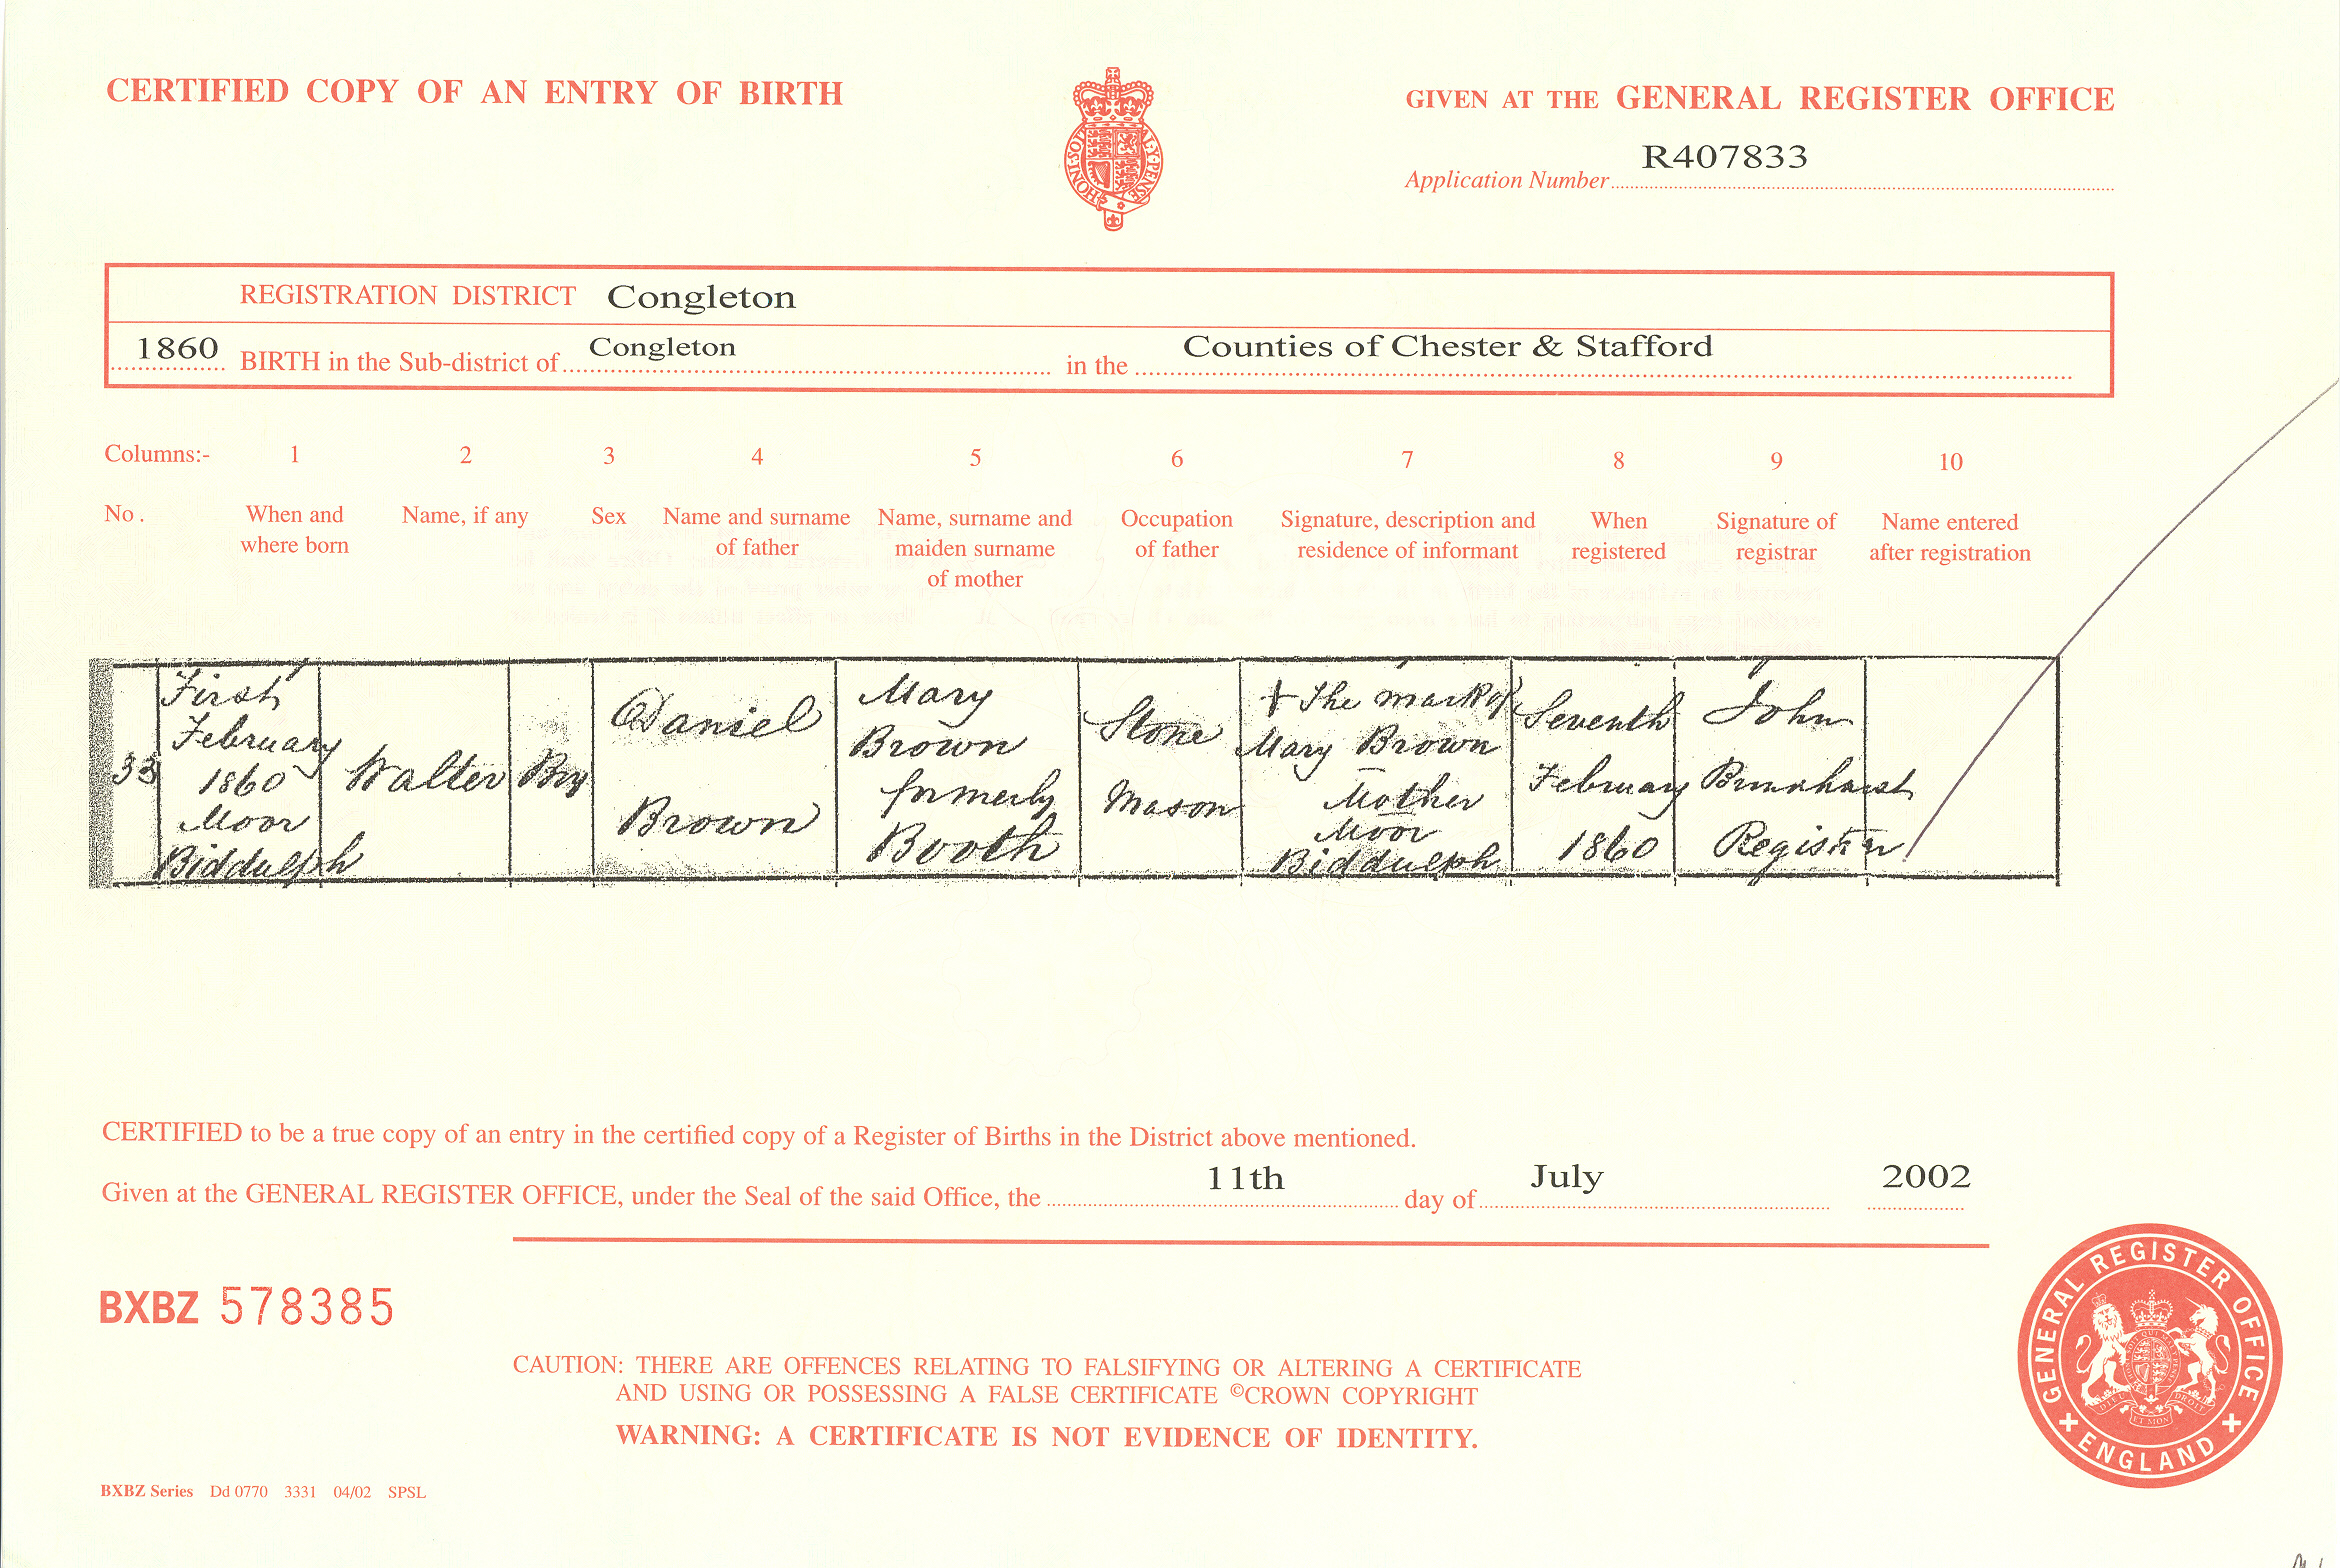 CERTIFIED COPY OF AN ENTRY OF BIRTH
GIVEN AT THE GENERAL REGISTER OFFICE
HONI·SOIT AL·Y·PENSE
Application Number R407833
REGISTRATION DISTRICT Congleton
1860 BIRTH in the Sub-district of Congleton in the Counties of Chester & Stafford
Columns:- 1 2 3 4 5 6 7 8 9 10
No. When and where born Name, if any Sex Name and surname of father Name, surname and maiden surname of mother Occupation of father Signature, description and residence of informant When registered Signature of registrar Name entered after registration
33
First
February
1860
Moor
Biddulph
Walter
Boy
Daniel
Brown
Mary
Brown
formerly
Booth
Stone
Mason
+ The mark of
Mary Brown
Mother
Moor
Biddulph
Seventh
February
1860
John
Registrar
CERTIFIED to be a true copy of an entry in the certified copy of a Register of Births in the District above mentioned.
Given at the GENERAL REGISTER OFFICE, under the Seal of the said Office, the 11th day of July 2002
BXBZ 578385
CAUTION: THERE ARE OFFENCES RELATING TO FALSIFYING OR ALTERING A CERTIFICATE
AND USING OR POSSESSING A FALSE CERTIFICATE ©CROWN COPYRIGHT
WARNING: A CERTIFICATE IS NOT EVIDENCE OF IDENTITY.
GENERAL REGISTER OFFICE
ENGLAND
BXBZ Series Dd 0770 3331 04/02 SPSL